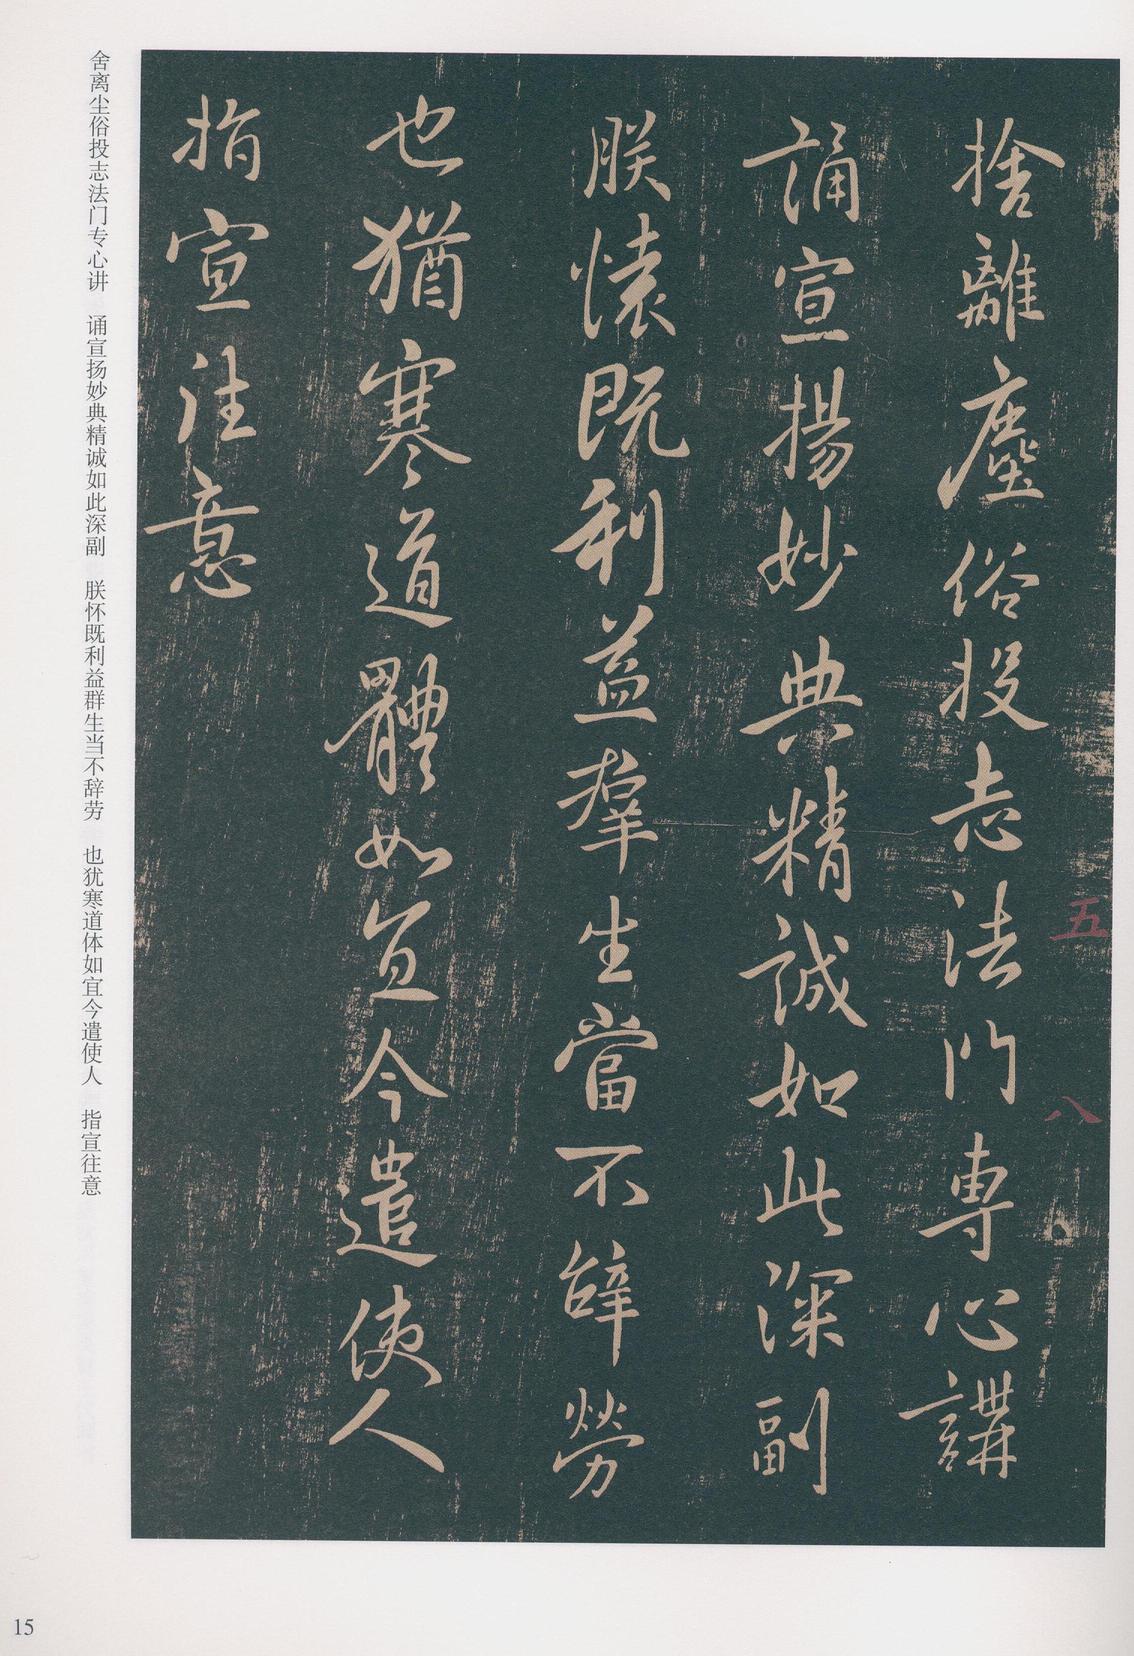 捨離塵俗投志法門專心講
誦宣揚妙典精誠如此深副
朕懷既利益羣生當不辭勞
也猶寒道體如宜今遣使人
指宣往意
五
八
舍离尘俗投志法门专心讲 诵宣扬妙典精诚如此深副 朕怀既利益群生当不辞劳 也犹寒道体如宜今遣使人 指宣往意
15